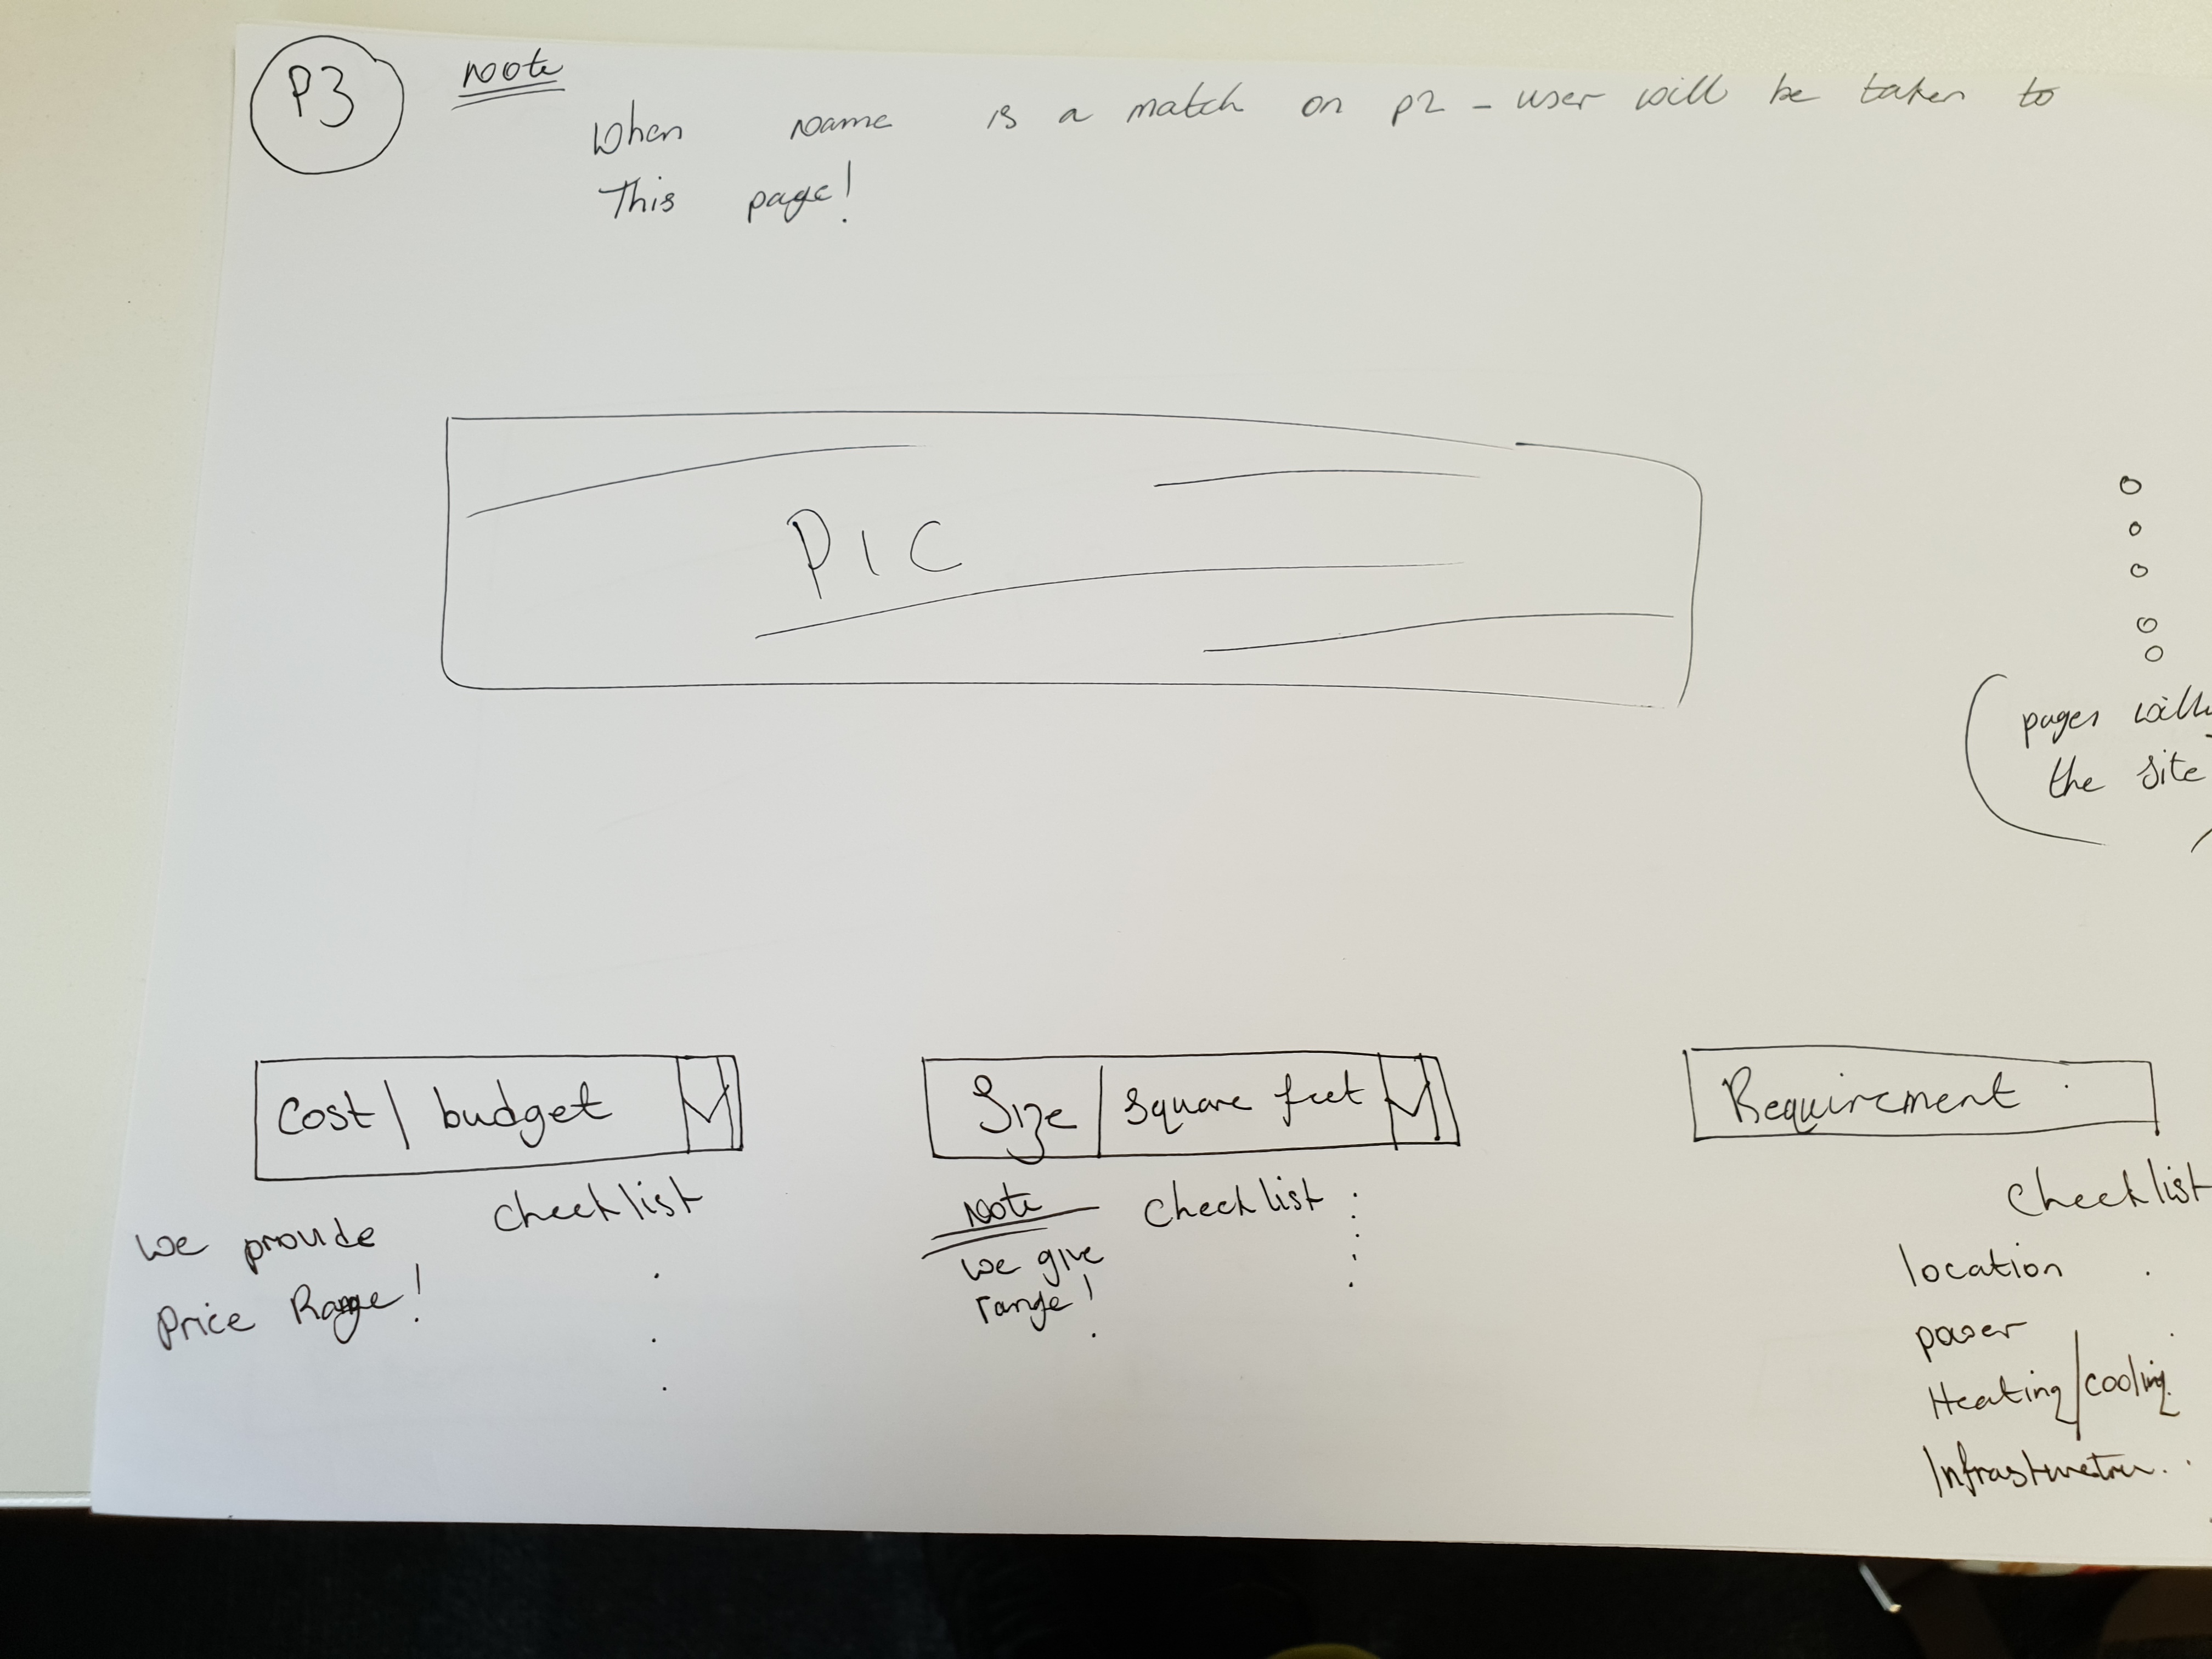 P3
Note
When name is a match on p2 - user will be taken to
This page!
PIC
pages will
the site
Cost / budget
checklist
We provide
Price Range!
Size / square feet
checklist
Note
We give
range!
Requirement
checklist
location
power
Heating/cooling